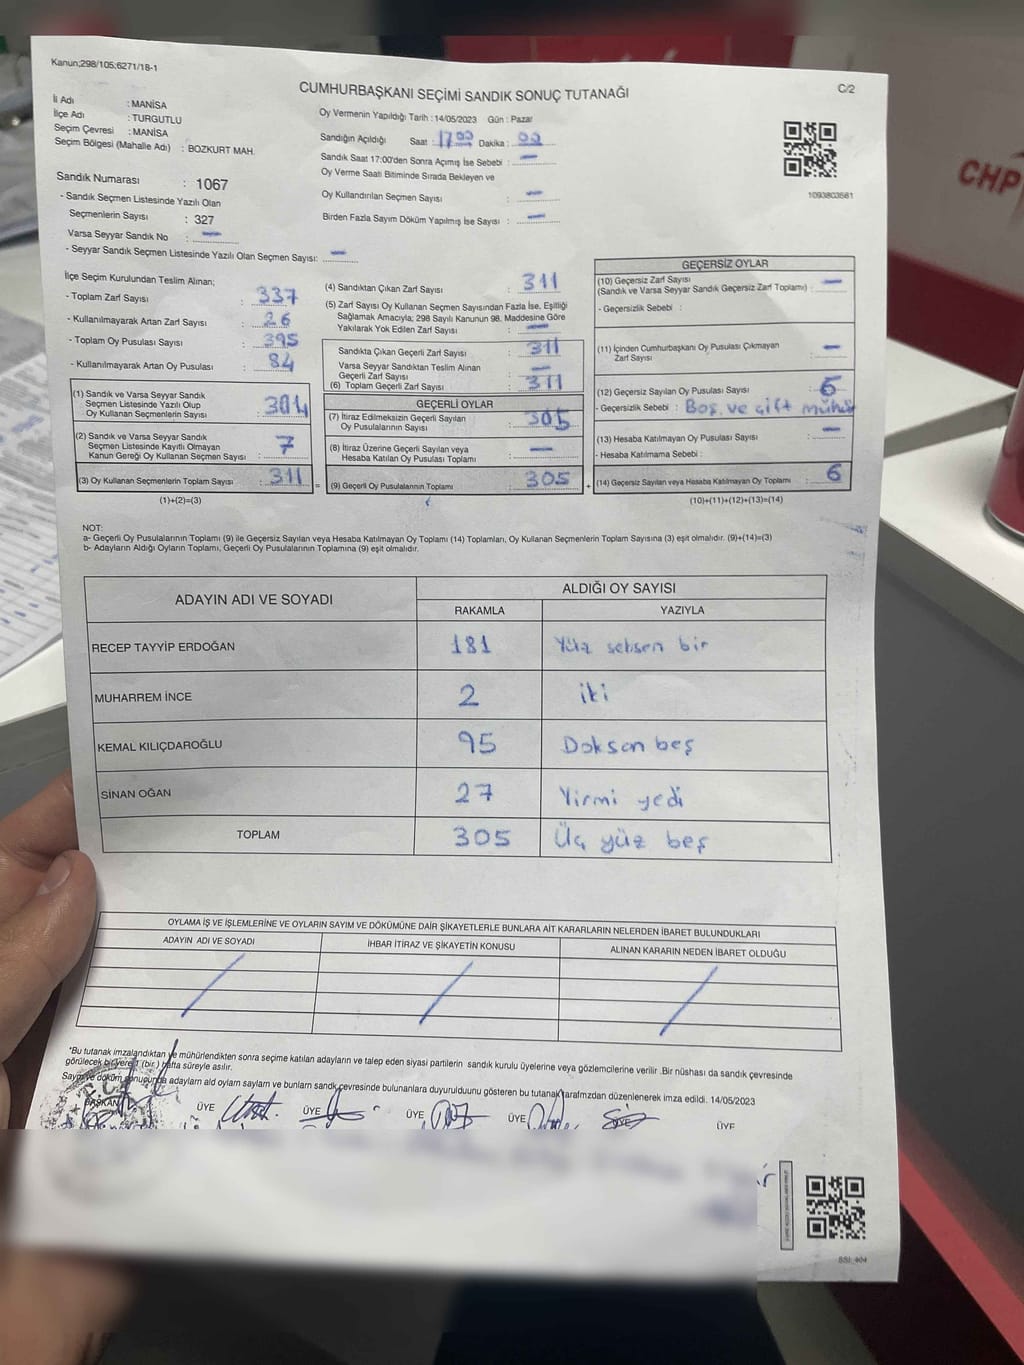 Kanun;298/105;6271/18-1
C/2
CUMHURBAŞKANI SEÇİMİ SANDIK SONUÇ TUTANAĞI
İl Adı : MANİSA
İlçe Adı : TURGUTLU
Seçim Çevresi : MANİSA
Seçim Bölgesi (Mahalle Adı) : BOZKURT MAH.
Sandık Numarası : 1067
- Sandık Seçmen Listesinde Yazılı Olan
Seçmenlerin Sayısı : 327
Varsa Seyyar Sandık No : —
- Seyyar Sandık Seçmen Listesinde Yazılı Olan Seçmen Sayısı: —
Oy Vermenin Yapıldığı Tarih : 14/05/2023 Gün : Pazar
Sandığın Açıldığı Saat : 17 00 Dakika : 00
Sandık Saat 17:00'den Sonra Açımış İse Sebebi : —
Oy Verme Saati Bitiminde Sırada Bekleyen ve
Oy Kullandırılan Seçmen Sayısı : —
Birden Fazla Sayım Döküm Yapılmış İse Sayısı : —
1093803561
İlçe Seçim Kurulundan Teslim Alınan;
- Toplam Zarf Sayısı : 337
- Kullanılmayarak Artan Zarf Sayısı : 26
- Toplam Oy Pusulası Sayısı : 395
- Kullanılmayarak Artan Oy Pusulası : 84
(1) Sandık ve Varsa Seyyar Sandık
Seçmen Listesinde Yazılı Olup
Oy Kullanan Seçmenlerin Sayısı : 304
(2) Sandık ve Varsa Seyyar Sandık
Seçmen Listesinde Kayıtlı Olmayan
Kanun Gereği Oy Kullanan Seçmen Sayısı : 7
(3) Oy Kullanan Seçmenlerin Toplam Sayısı : 311
(1)+(2)=(3)
(4) Sandıktan Çıkan Zarf Sayısı : 311
(5) Zarf Sayısı Oy Kullanan Seçmen Sayısından Fazla İse, Eşitliği
Sağlamak Amacıyla; 298 Sayılı Kanunun 98. Maddesine Göre
Yakılarak Yok Edilen Zarf Sayısı : —
Sandıkta Çıkan Geçerli Zarf Sayısı : 311
Varsa Seyyar Sandıktan Teslim Alınan
Geçerli Zarf Sayısı : —
(6) Toplam Geçerli Zarf Sayısı : 311
GEÇERLİ OYLAR
(7) İtiraz Edilmeksizin Geçerli Sayılan
Oy Pusulalarının Sayısı : 305
(8) İtiraz Üzerine Geçerli Sayılan veya
Hesaba Katılan Oy Pusulası Toplamı : —
= (9) Geçerli Oy Pusulalarının Toplamı : 305
GEÇERSİZ OYLAR
(10) Geçersiz Zarf Sayısı
(Sandık ve Varsa Seyyar Sandık Geçersiz Zarf Toplamı) : —
- Geçersizlik Sebebi :
(11) İçinden Cumhurbaşkanı Oy Pusulası Çıkmayan
Zarf Sayısı : —
(12) Geçersiz Sayılan Oy Pusulası Sayısı : 6
- Geçersizlik Sebebi : Boş ve çift mühür
(13) Hesaba Katılmayan Oy Pusulası Sayısı : —
- Hesaba Katılmama Sebebi :
+ (14) Geçersiz Sayılan veya Hesaba Katılmayan Oy Toplamı : 6
(10)+(11)+(12)+(13)=(14)
NOT:
a- Geçerli Oy Pusulalarının Toplamı (9) ile Geçersiz Sayılan veya Hesaba Katılmayan Oy Toplamı (14) Toplamları, Oy Kullanan Seçmenlerin Toplam Sayısına (3) eşit olmalıdır. (9)+(14)=(3)
b- Adayların Aldığı Oyların Toplamı, Geçerli Oy Pusulalarının Toplamına (9) eşit olmalıdır.
ADAYIN ADI VE SOYADI
ALDIĞI OY SAYISI
RAKAMLA YAZIYLA
RECEP TAYYİP ERDOĞAN 181 Yüz seksen bir
MUHARREM İNCE 2 iki
KEMAL KILIÇDAROĞLU 95 Doksan beş
SİNAN OĞAN 27 Yirmi yedi
TOPLAM 305 Üç yüz beş
OYLAMA İŞ VE İŞLEMLERİNE VE OYLARIN SAYIM VE DÖKÜMÜNE DAİR ŞİKAYETLERLE BUNLARA AİT KARARLARIN NELERDEN İBARET BULUNDUKLARI
ADAYIN ADI VE SOYADI İHBAR İTİRAZ VE ŞİKAYETİN KONUSU ALINAN KARARIN NEDEN İBARET OLDUĞU
*Bu tutanak imzalandıktan ve mühürlendikten sonra seçime katılan adayların ve talep eden siyasi partilerin sandık kurulu üyelerine veya gözlemcilerine verilir .Bir nüshası da sandık çevresinde
görülecek bir yere 1 (bir ) hafta süreyle asılır.
Sayım ve döküm sonucunda adayların ald oyların sayların ve bunların sandk çevresinde bulunanlara duyurulduunu gösteren bu tutanak tarafmzdan düzenlenerek imza edildi. 14/05/2023
BAŞKAN ÜYE ÜYE ÜYE ÜYE ÜYE
SSI_404
CHP